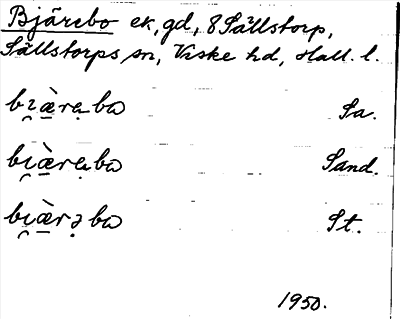 Bjärebo ek, gd, 8 Sällstorp,
Sällstorps sn, Viske hd, Hall. l.
bı̯ä̀rẹbo Sa.
bı̯ä̀rẹbo Sand.
bı̯ä̀rəbo St.
1950.